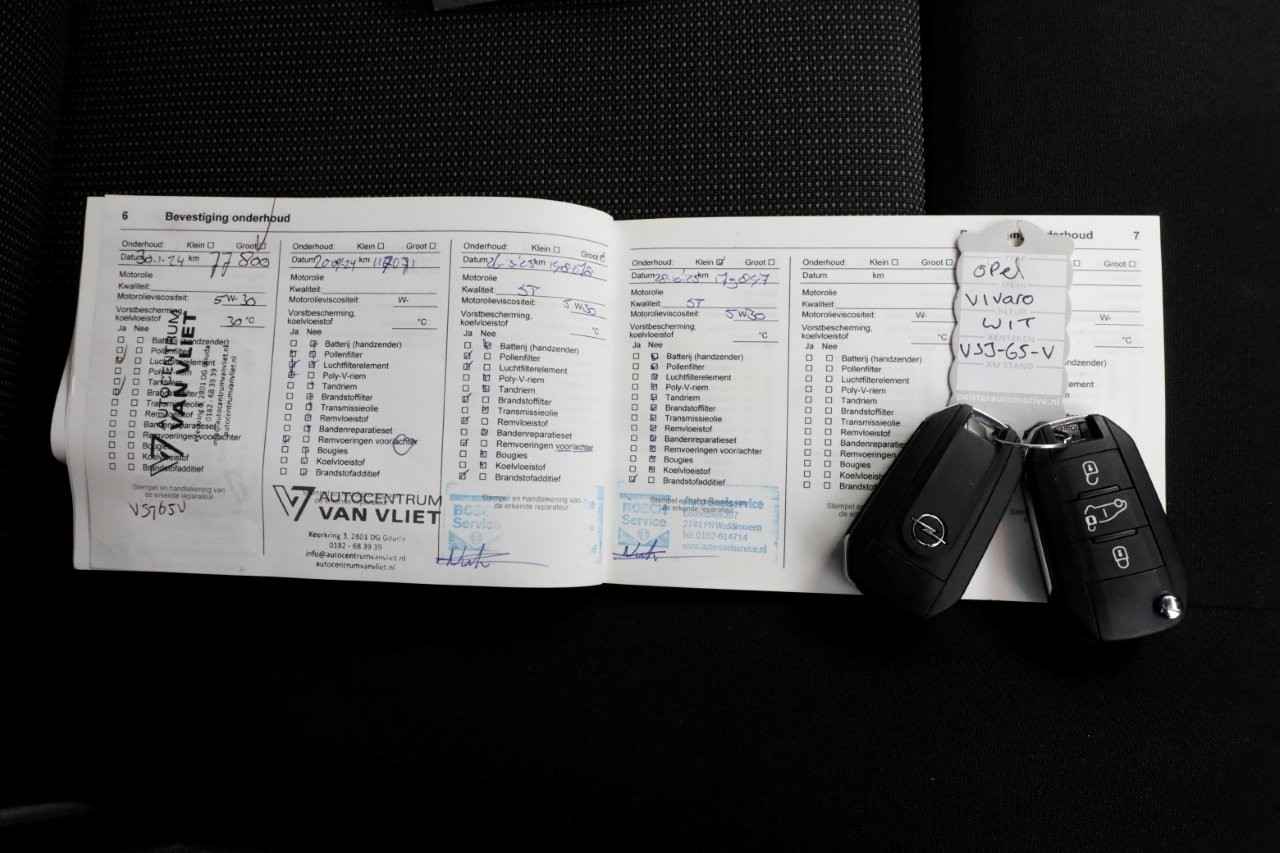 6 Bevestiging onderhoud
Onderhoud: Klein Groot
Datum 30.1.24 km 77800
Motorolie
Kwaliteit:
Motorolieviscositeit: 5W-30
Vorstbescherming,
koelvloeistof 30 °C
Ja Nee
Batterij (handzender)
Pollenfilter
Luchtfilterelement
Brandstoffilter
Transmissieolie
Remvloeistof
Bandenreparatieset
Remvoeringen voor/achter
Bougies
Koelvloeistof
Brandstofadditief
Stempel en handtekening van
de erkende reparateur
VSJ65V
AUTOCENTRUM
VAN VLIET
autocentrumvanvliet.nl
Onderhoud: Klein Groot
Datum km
Motorolie
Kwaliteit:
Motorolieviscositeit: W-
Vorstbescherming,
koelvloeistof °C
Ja Nee
Batterij (handzender)
Pollenfilter
Luchtfilterelement
Poly-V-riem
Tandriem
Brandstoffilter
Transmissieolie
Remvloeistof
Bandenreparatieset
Remvoeringen voor/achter
Bougies
Koelvloeistof
Brandstofadditief
AUTOCENTRUM
VAN VLIET
Keerkring 3, 2801 DG Gouda
0182 - 68 39 39
info@autocentrumvanvliet.nl
autocentrumvanvliet.nl
Onderhoud: Klein Groot
Datum km
Motorolie
Kwaliteit: ST
Motorolieviscositeit: 5W30
Vorstbescherming,
koelvloeistof °C
Ja Nee
Batterij (handzender)
Pollenfilter
Luchtfilterelement
Poly-V-riem
Tandriem
Brandstoffilter
Transmissieolie
Remvloeistof
Bandenreparatieset
Remvoeringen voor/achter
Bougies
Koelvloeistof
Brandstofadditief
Stempel en handtekening van
de erkende reparateur
BOSCH
Service
onderhoud 7
Onderhoud: Klein Groot
Datum km
Motorolie
Kwaliteit: ST
Motorolieviscositeit: 5W30
Vorstbescherming,
koelvloeistof °C
Ja Nee
Batterij (handzender)
Pollenfilter
Luchtfilterelement
Poly-V-riem
Tandriem
Brandstoffilter
Transmissieolie
Remvloeistof
Bandenreparatieset
Remvoeringen voor/achter
Bougies
Koelvloeistof
Brandstofadditief
BOSCH
Service
2741 PN Waddinxveen
Tel. 0182-614714
Onderhoud: Klein Groot
Datum km
Motorolie
Kwaliteit:
Motorolieviscositeit: W-
Vorstbescherming,
koelvloeistof °C
Ja Nee
Batterij (handzender)
Pollenfilter
Luchtfilterelement
Poly-V-riem
Tandriem
Brandstoffilter
Transmissieolie
Remvloeistof
Bandenreparatieset
Remvoeringen
Bougies
Koelvloeistof
Groot
W-
°C
opel
vivaro
WIT
KENTEKEN
VSJ-65-V
KM STAND